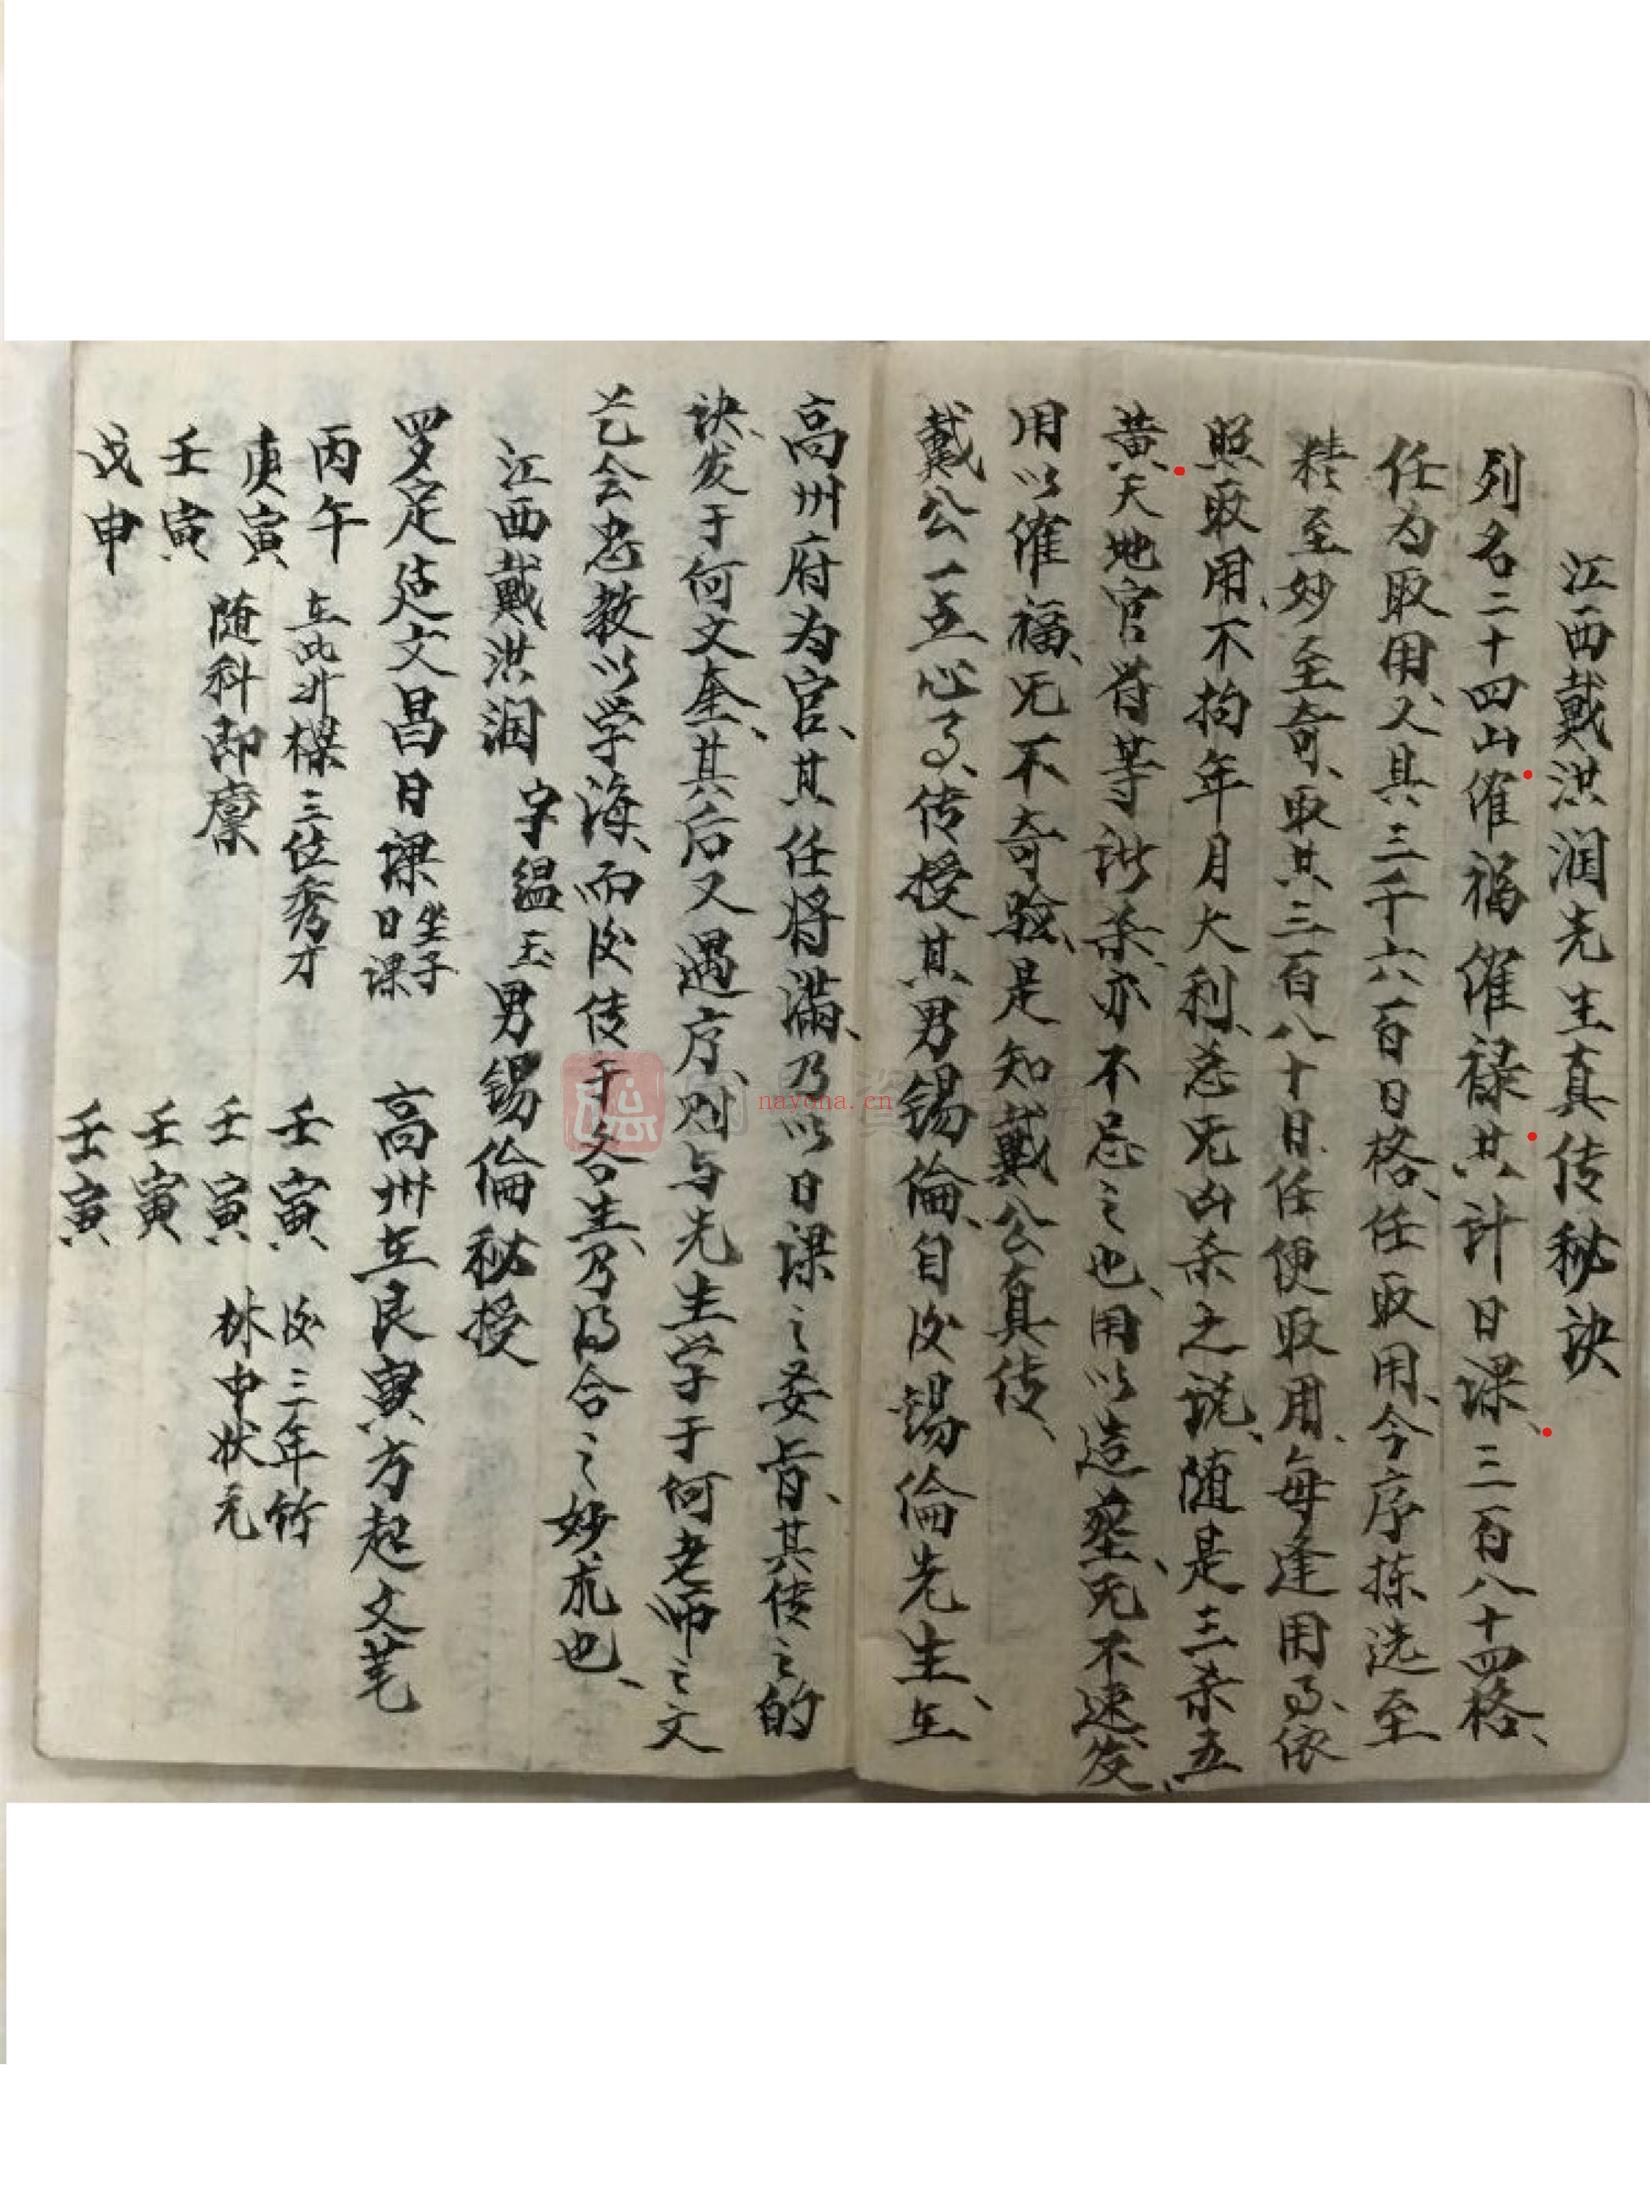 江西戴洪润先生真传秘诀
列名二十四山催福催禄共计日课、三百八十四格、
任为取用、又具三千六百日格、任取用、今序拣选至
精至妙至奇、取其三百八十日、任便取用、每逢用事、依
照取用、不拘年月大利、总无凶杀之说、随是三杀五
黄天地官符等诸杀、亦不忌之也、用以造葬、无不速发、
用以催福、无不奇验、是知戴公真传、
戴公一点心了、传授其男锡倫、自后锡倫先生、在
高州府为官、其任将满、乃以日课之妾旨、其传之的
诀、发于何文奎、其后又遇序、则与先生学于何老师之文
艺会、忠教以学海、而后传于各生、乃得合之妙术也、
江西戴洪润 字緼玉 男锡倫秘授
罗定廷文昌日课 坐子日课
丙午 在此升樑三位秀才
庚寅
壬寅 随科即廪
戊申
高州在艮寅方起文笔
壬寅 后三年竹
壬寅 林中状元
壬寅
壬寅
nayona.cn